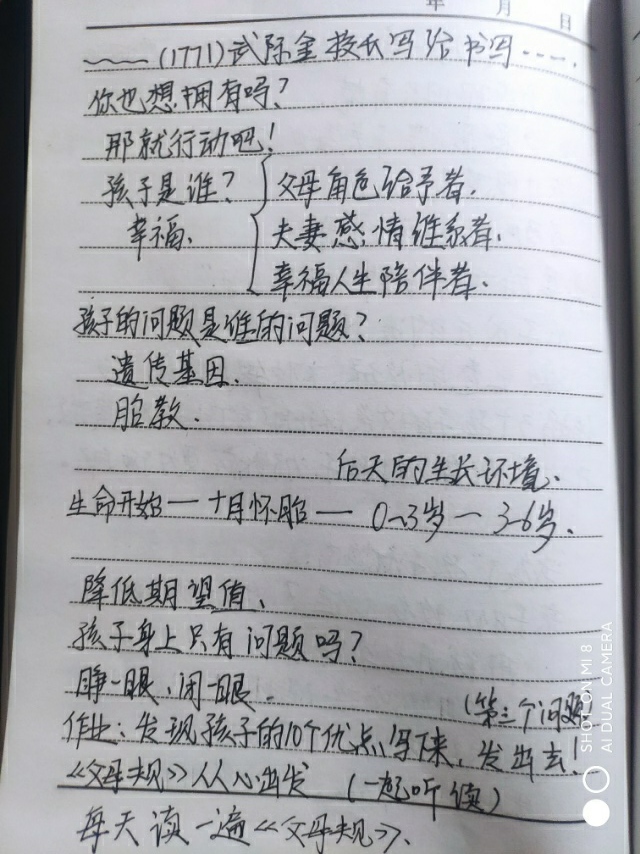 年 月 日
(1771)武际金投稿写给书写……
你也想拥有吗？
那就行动吧！
孩子是谁？ 父母角色给予者.
幸福. 夫妻感情维系者.
幸福人生陪伴者.
孩子的问题是谁的问题？
遗传基因.
胎教.
后天的生长环境、
生命开始一十月怀胎一 0~3岁一 3-6岁、
降低期望值、
孩子身上只有问题吗？
睁一眼,闭一眼.
(第三个问题)
作业:发现孩子的10个优点写下来,发出去!
《父母规》从心出发 (一起听读)
每天读一遍《父母规》.
SHOT ON MI 8
AI DUAL CAMERA